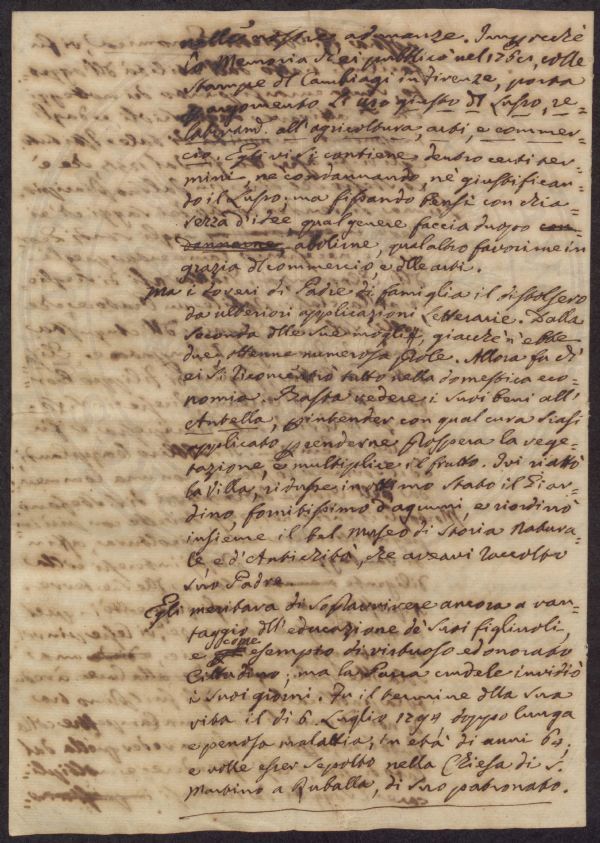 nelle nostre adunanze. Imperocchè
la Memoria ch'ei pubblicò nel 1764, colle
stampe di Cambiagi in Firenze, porta
p argomento il uso giusto del Lusso, re-
lativam. all'agricoltura, arti, e commer-
cio. Egli vi si contiene dentro certi ter-
mini, nè condannando, nè giustifican-
do il Lusso; ma fissando bensì con chia-
rezza d'idee, qual genere faccia duopo con-
dannarne, abolirne, qual altro favorirne in
grazia del commercio, e delle arti.
Ma i doveri di Padre di famiglia il distolsero
da ulteriori applicazioni Letterarie. Dalla
seconda delle sue mogli, giacchè n'ebbe
due, ottenne numerosa Prole. Allora fu ch'
ei si riconcentrò tutto nella domestica eco-
nomia. Basta vedere i suoi beni all'
Antella, p intender con qual cura siasi
applicato p renderne prospera la vege-
tazione, e multiplice il frutto. Ivi riattò
la Villa, ridusse in ottimo stato il Giar-
dino, fornitissimo d'agrumi, e riordinò
insieme il bel Museo di Storia Natura-
le e d'Antichità, che aveavi raccolto
suo Padre.
Egli meritava di sopravvivere ancora a van-
taggio dell'educazione de' suoi figliuoli,
e come esempio di virtuoso ed onorato
Cittadino; ma la Parca crudele invidiò
i suoi giorni. Fu il termine della sua
vita il dì 6. Luglio 1794 doppo lunga
e penosa malattia, in età di anni 64,
e volle esser sepolto nella Chiesa di S.
Martino a Ruballa, di suo patronato.